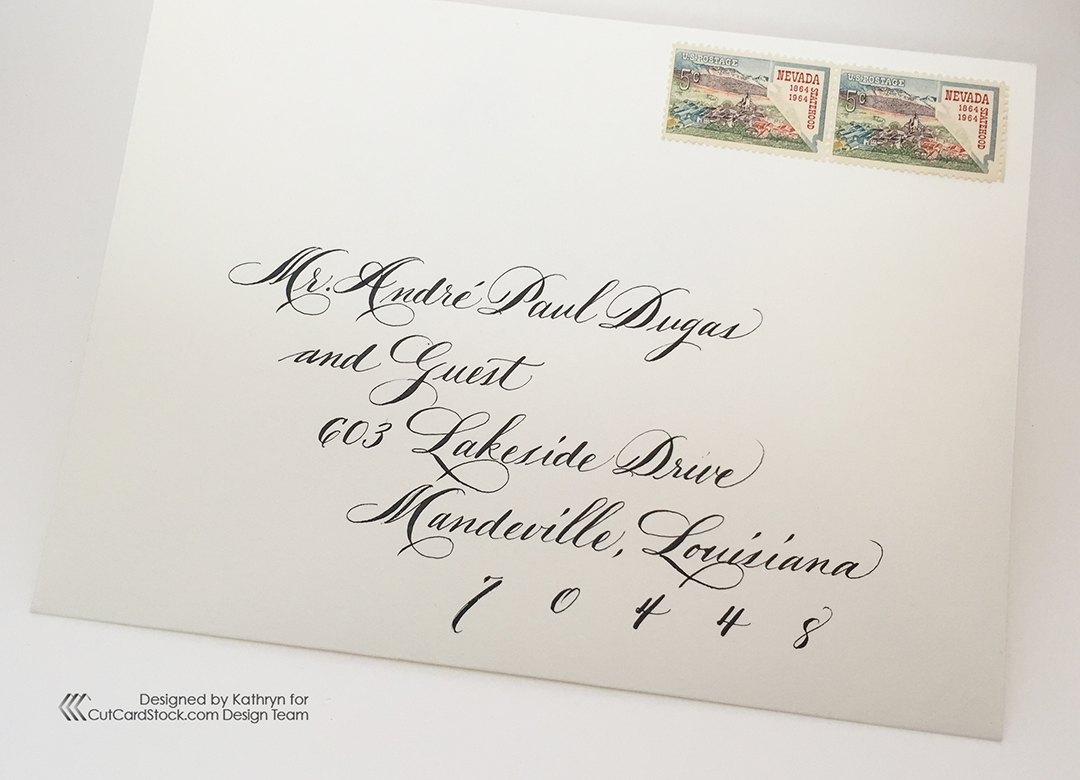 U.S. POSTAGE
5¢
NEVADA
1864
1964
STATEHOOD
U.S. POSTAGE
5¢
NEVADA
1864
1964
STATEHOOD
Mr. André Paul Dugas
and Guest
603 Lakeside Drive
Mandeville, Louisiana
7 0 4 4 8
Designed by Kathryn for
CutCardStock.com Design Team